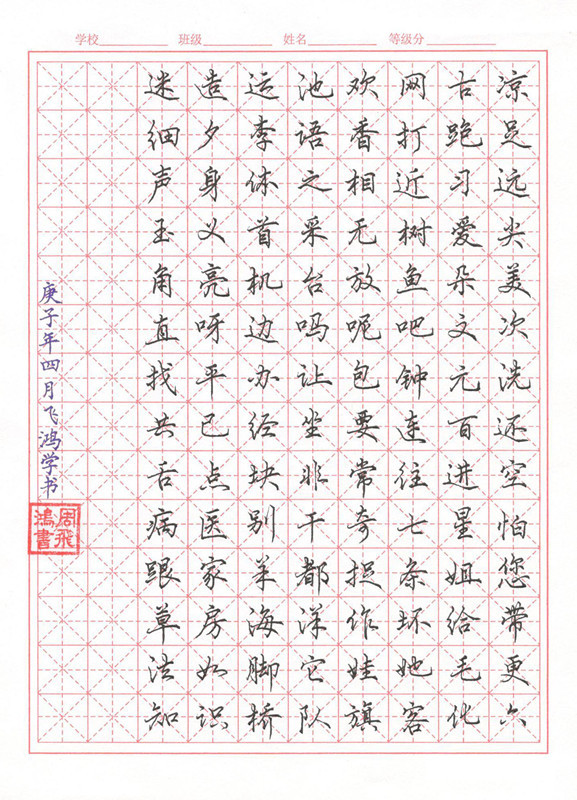 学校 班级 姓名 等级分
凉足远尖美次洗还空怕您带更六
古跑习爱朵文元百进星姐给毛化
网打近树鱼吧钟连往七条坏她客
欢香相无放呢包要常奇捉作娃旗
池语之采台吗让坐非干都洋它队
运李体首机边办经块别羊海脚桥
造夕身义亮呀平已点医家房如识
迷细声玉角直找共舌病跟草法知
庚子年四月飞鸿学书
周飛
鴻書